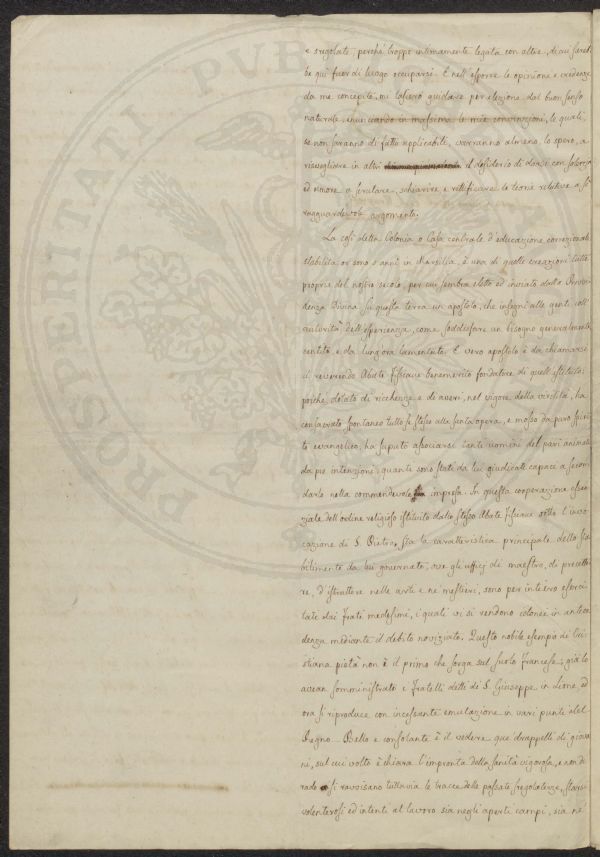 e sregolati, perchè troppo intimamente legata con altre, di cui sareb
be qui fuor di luogo occuparsi. E nell'esporre le opinioni e credenze
da me concepite, mi lascerò guidare per elezione dal buon senso
naturale, enunciando in massima le mie convinzioni, le quali,
se non saranno di fatto applicabili, varranno almeno, lo spero, a
risvegliare in altri il desiderio di darsi con solerzia
ed amore a scrutare, schiarire e rettificare le teorie relative a sì
ragguardevole argomento.
La così detta Colonia o Casa centrale d'educazione correzionale
stabilita or sono anni in Marsilia, è una di quelle creazioni tutte
proprie del nostro secolo, per cui sembra eletto ed inviato dalla Provvi
denza Divina su questa terra un apostolo, che insegni alle genti coll'
autorità dell'esperienza, come soddisfare un bisogno generalmente
sentito, e da lung'ora lamentato. E vero apostolo è da chiamarsi
il reverendo Abate Fissiaux benemerito fondatore di quell'istituto:
poichè dotato di ricchezze e di averi, nel vigore della virilità, ha
consacrato spontaneo tutto se stesso alla santa opera, e mosso da puro spiri
to evangelico, ha saputo associarsi tanti uomini del pari animati
da pie intenzioni, quanti sono stati da lui giudicati capaci a secon
darlo nella commendevole impresa. In questa cooperazione essen
ziale dell'ordine religioso istituito dallo stesso Abate Fissiaux sotto l'invo
cazione di S. Pietro, sta la caratteristica principale dello sta
bilimento da lui governato, ove gli ufficj di maestro, di precetto
re, d'istruttore nelle arti e ne' mestieri, sono per intiero eserci
tati dai Frati medesimi, i quali vi si rendono idonei in antece
denza mediante il debito noviziato. Questo nobile esempio di Cri
stiana pietà non è il primo che sorga sul suolo Francese; già lo
avean somministrato i Fratelli detti di S. Giuseppe in Lione, ed
ora si riproduce con incessante emulazione in vari punti del
Regno. Bello e consolante è il vedere que' drappelli di giova
ni, sul cui volto è chiara l'impronta della sanità vigorosa, e non di
rado si ravvisano tuttavia le tracce delle passate sregolatezze, starsi
volenterosi ed intenti al lavoro sia negli aperti campi, sia ne'
PROSPERITATI PVBLICAE